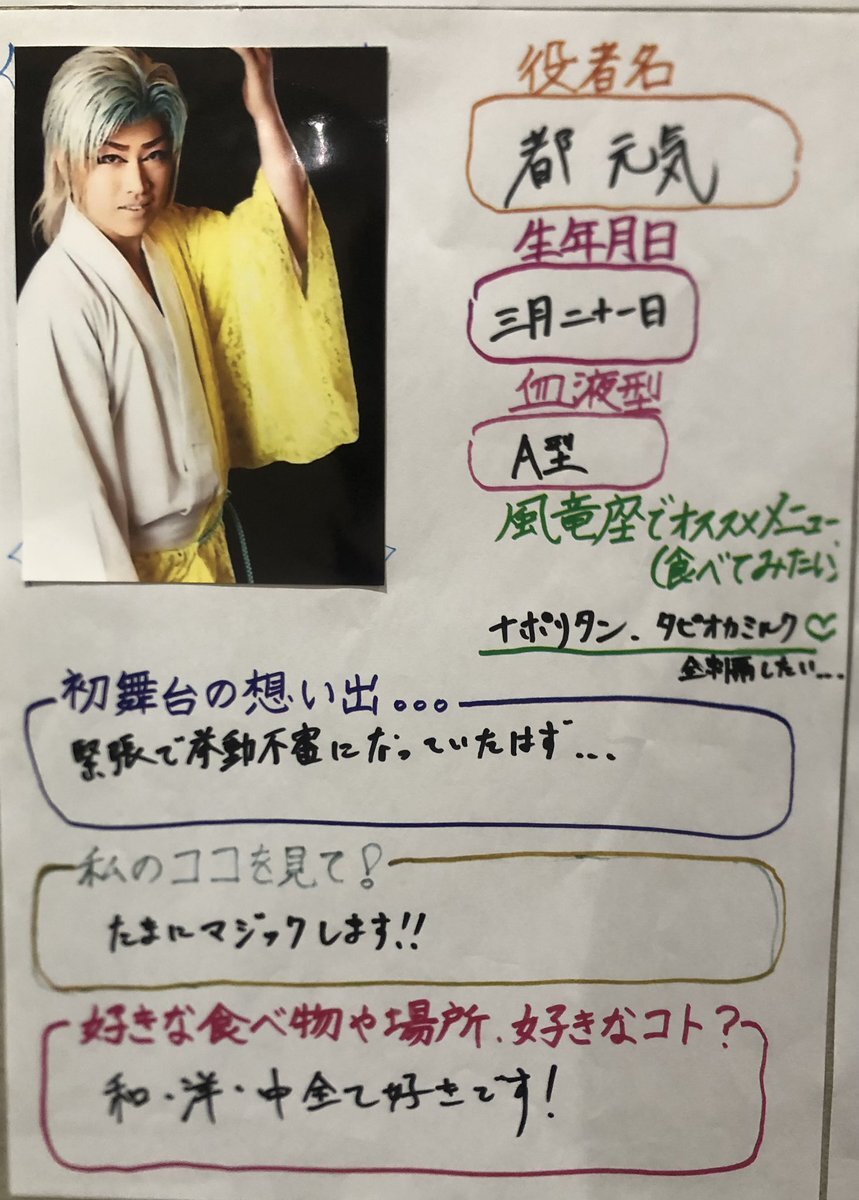 役者名
都 元気
生年月日
三月二十一日
血液型
A型
風竜座でオススメメニュー
(食べてみたい)
ナポリタン、タピオカミルク♡
全制覇したい...
初舞台の想い出...
緊張で挙動不審になっていたはず...
私のココを見て!
たまにマジックします!!
好きな食べ物や場所、好きなコト?
和・洋・中全て好きです!